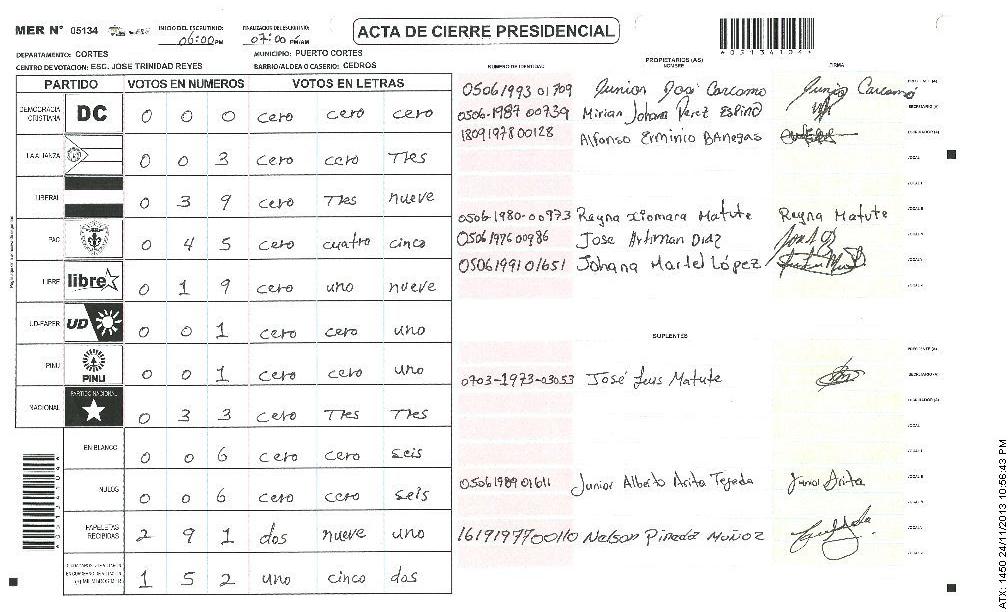 MER N° 05134 INICIO DEL ESCRUTINIO: 06:00 PM FINALIZACION DEL ESCRUTINIO: 07:00 PM/AM
ACTA DE CIERRE PRESIDENCIAL
DEPARTAMENTO: CORTES MUNICIPIO: PUERTO CORTES
CENTRO DE VOTACION: ESC. JOSE TRINIDAD REYES BARRIO/ALDEA O CASERIO: CEDROS
PARTIDO VOTOS EN NUMEROS VOTOS EN LETRAS
DEMOCRACIA CRISTIANA DC 0 0 0 cero cero cero
LA ALIANZA 0 0 3 cero cero Tres
LIBERAL 0 3 9 cero Tres nueve
PAC 0 4 5 cero cuatro cinco
LIBRE libre 0 1 9 cero uno nueve
UD-FAPER UD 0 0 1 cero cero uno
PINU PINU 0 0 1 cero cero uno
NACIONAL PARTIDO NACIONAL 0 3 3 cero Tres Tres
EN BLANCO 0 0 6 cero cero seis
NULOS 0 0 6 cero cero seis
PAPELETAS RECIBIDAS 2 9 1 dos nueve uno
1 5 2 uno cinco dos
NUMERO DE IDENTIDAD PROPIETARIOS (AS) NOMBRE FIRMA
0506 1993 01709 Junior José Carcamo Junior Carcamo PRESIDENTE (A)
0506-1987 00739 Mirian Johana Perez Espino SECRETARIO (A)
1809 1978 00128 Alfonso Erminio BAnegas ESCRUTADOR (A)
VOCAL I
VOCAL II
0506-1980-00973 Reyna Xiomara Matute Reyna Matute VOCAL III
0506 1976 00986 Jose Artiman Diaz
0506 1991 01651 Johana Martel López
SUPLENTES
PRESIDENTE (A)
0703-1973-03053 José Luis Matute SECRETARIO (A)
ESCRUTADOR (A)
VOCAL I
VOCAL II
0506 1989 01611 Junior Alberto Arita Tejeda Junior Arita
1619 1977 00110 Nelson Pineda Muñoz
ATX: 1450 24/11/2013 10:56:43 PM